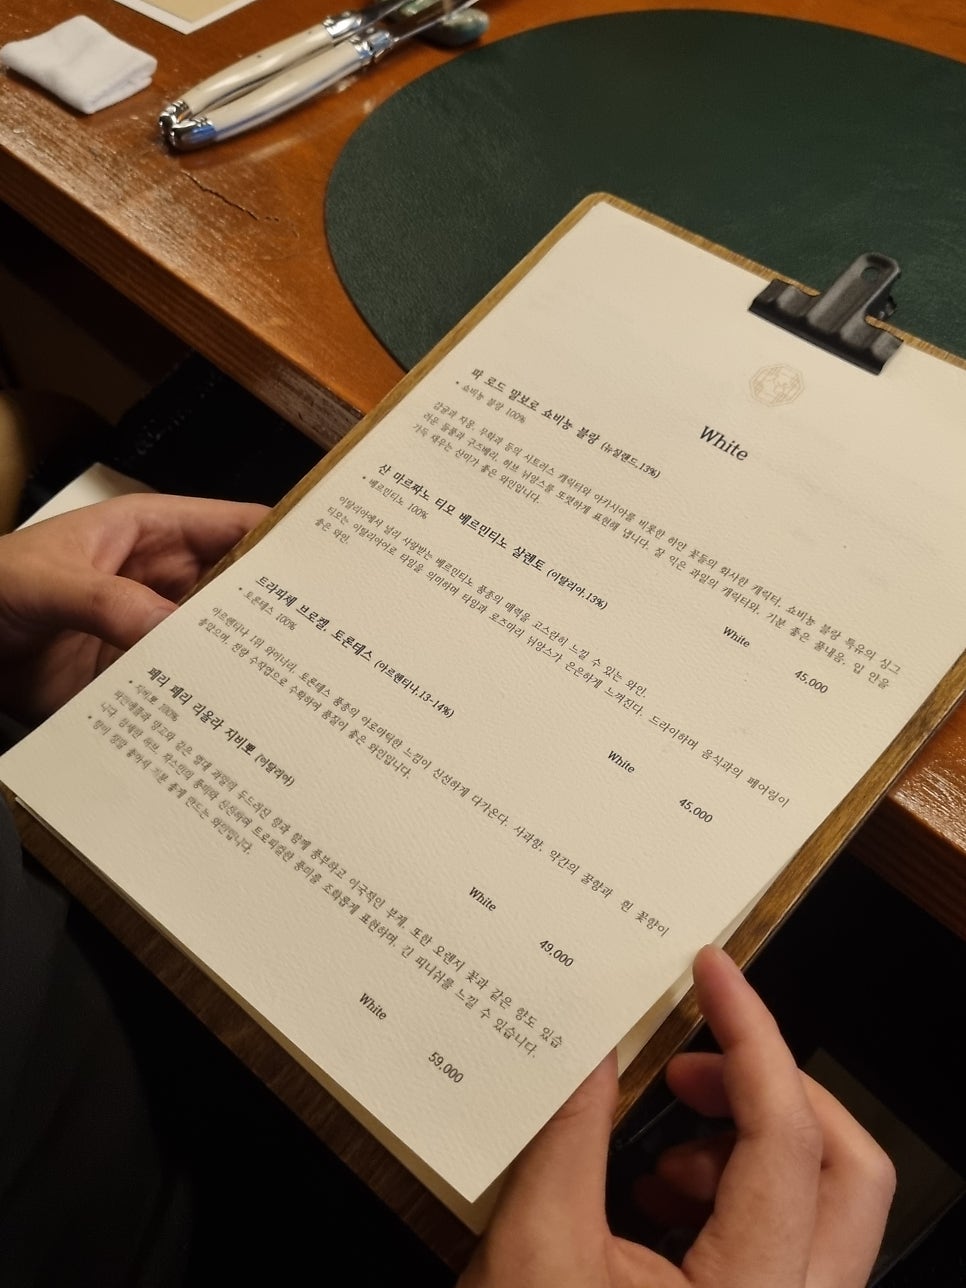 White
파 로드 말보로 쇼비뇽 블랑 (뉴질랜드,13%)
White
45,000
• 쇼비뇽 블랑 100%
감귤과 자몽, 무화과 등의 시트러스 캐릭터와 아카시아를 비롯한 하얀 꽃들의 화사한 캐릭터, 쇼비뇽 블랑 특유의 싱그
러운 돌풀과 구즈베리, 허브 뉘앙스를 또렷하게 표현해 냅니다. 잘 익은 과일의 캐릭터와, 기분 좋은 풀내음, 입 안을
가득 채우는 산미가 좋은 와인입니다.
산 마르짜노 티모 베르민티노 살렌토 (이탈리아,13%)
White
45,000
• 베르민티노 100%
이탈리아에서 널리 사랑받는 베르민티노 품종의 매력을 고스란히 느낄 수 있는 와인.
티모는 이탈리아어로 타임을 의미하며 타임과 로즈마리 뉘앙스가 은은하게 느껴진다. 드라이하며 음식과의 페어링이
좋은 와인.
트라피체 브로켈, 토론테스 (아르헨티나,13-14%)
White
49,000
• 토론테스 100%
아르헨티나 1위 와이너리. 토론테스 품종의 아로마틱한 느낌이 신선하게 다가온다. 사과향, 약간의 꿀향과 흰 꽃향이
좋았으며, 전량 수작업으로 수확하여 품질이 좋은 와인입니다.
페리 페리 리올라 지비뽀 (이탈리아)
White
59,000
• 지비뽀 100%
파인애플과 망고와 같은 열대 과일의 두드러진 향과 함께 풍부하고 이국적인 부케, 또한 오렌지 꽃과 같은 향도 있습
니다. 섬세한 허브, 자스민의 풍미와 신선하며 트로피컬한 풍미를 조화롭게 표현하며, 긴 피니쉬를 느낄 수 있습니다.
• 향이 정말 좋아서 기분 좋게 만드는 와인입니다.